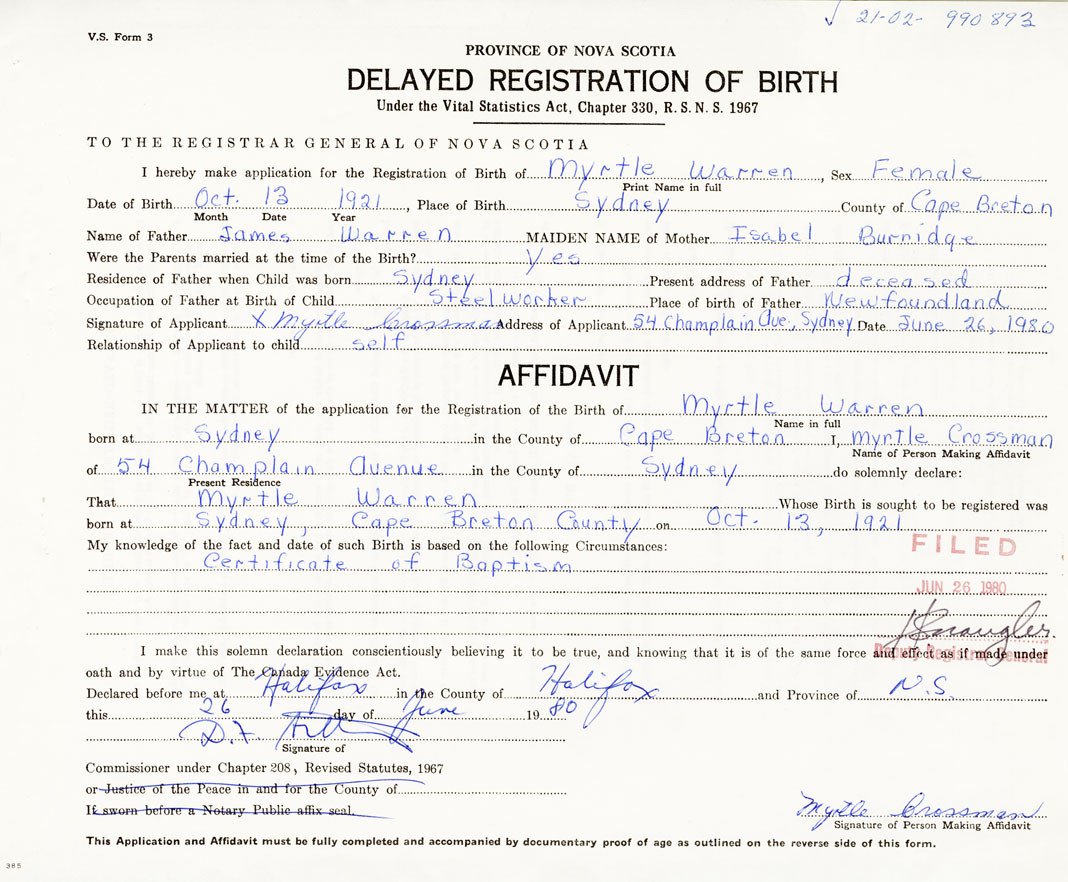 ✓ 21-02- 990893
V.S. Form 3
PROVINCE OF NOVA SCOTIA
DELAYED REGISTRATION OF BIRTH
Under the Vital Statistics Act, Chapter 330, R.S.N.S. 1967
TO THE REGISTRAR GENERAL OF NOVA SCOTIA
I hereby make application for the Registration of Birth of Myrtle Warren, Sex Female
Print Name in full
Date of Birth Oct. 13 1921, Place of Birth Sydney County of Cape Breton
Month Date Year
Name of Father James Warren MAIDEN NAME of Mother Isabel Burridge
Were the Parents married at the time of the Birth? Yes
Residence of Father when Child was born Sydney Present address of Father deceased
Occupation of Father at Birth of Child Steelworker Place of birth of Father Newfoundland
Signature of Applicant X Myrtle Crossman Address of Applicant 54 Champlain Ave., Sydney Date June 26, 1980
Relationship of Applicant to child self
AFFIDAVIT
IN THE MATTER of the application for the Registration of the Birth of Myrtle Warren
Name in full
born at Sydney in the County of Cape Breton I, Myrtle Crossman
Name of Person Making Affidavit
of 54 Champlain Avenue in the County of Sydney do solemnly declare:
Present Residence
That Myrtle Warren Whose Birth is sought to be registered was
born at Sydney, Cape Breton County on Oct. 13, 1921
My knowledge of the fact and date of such Birth is based on the following Circumstances:
FILED
Certificate of Baptism
JUN 26 1980
I make this solemn declaration conscientiously believing it to be true, and knowing that it is of the same force and effect as if made under
Deputy Registrar General
oath and by virtue of The Canada Evidence Act.
Declared before me at Halifax in the County of Halifax and Province of N.S.
this 26 day of June 1980
D.F.
Signature of
Commissioner under Chapter 208, Revised Statutes, 1967
or Justice of the Peace in and for the County of
If sworn before a Notary Public affix seal.
Myrtle Crossman
Signature of Person Making Affidavit
This Application and Affidavit must be fully completed and accompanied by documentary proof of age as outlined on the reverse side of this form.
385